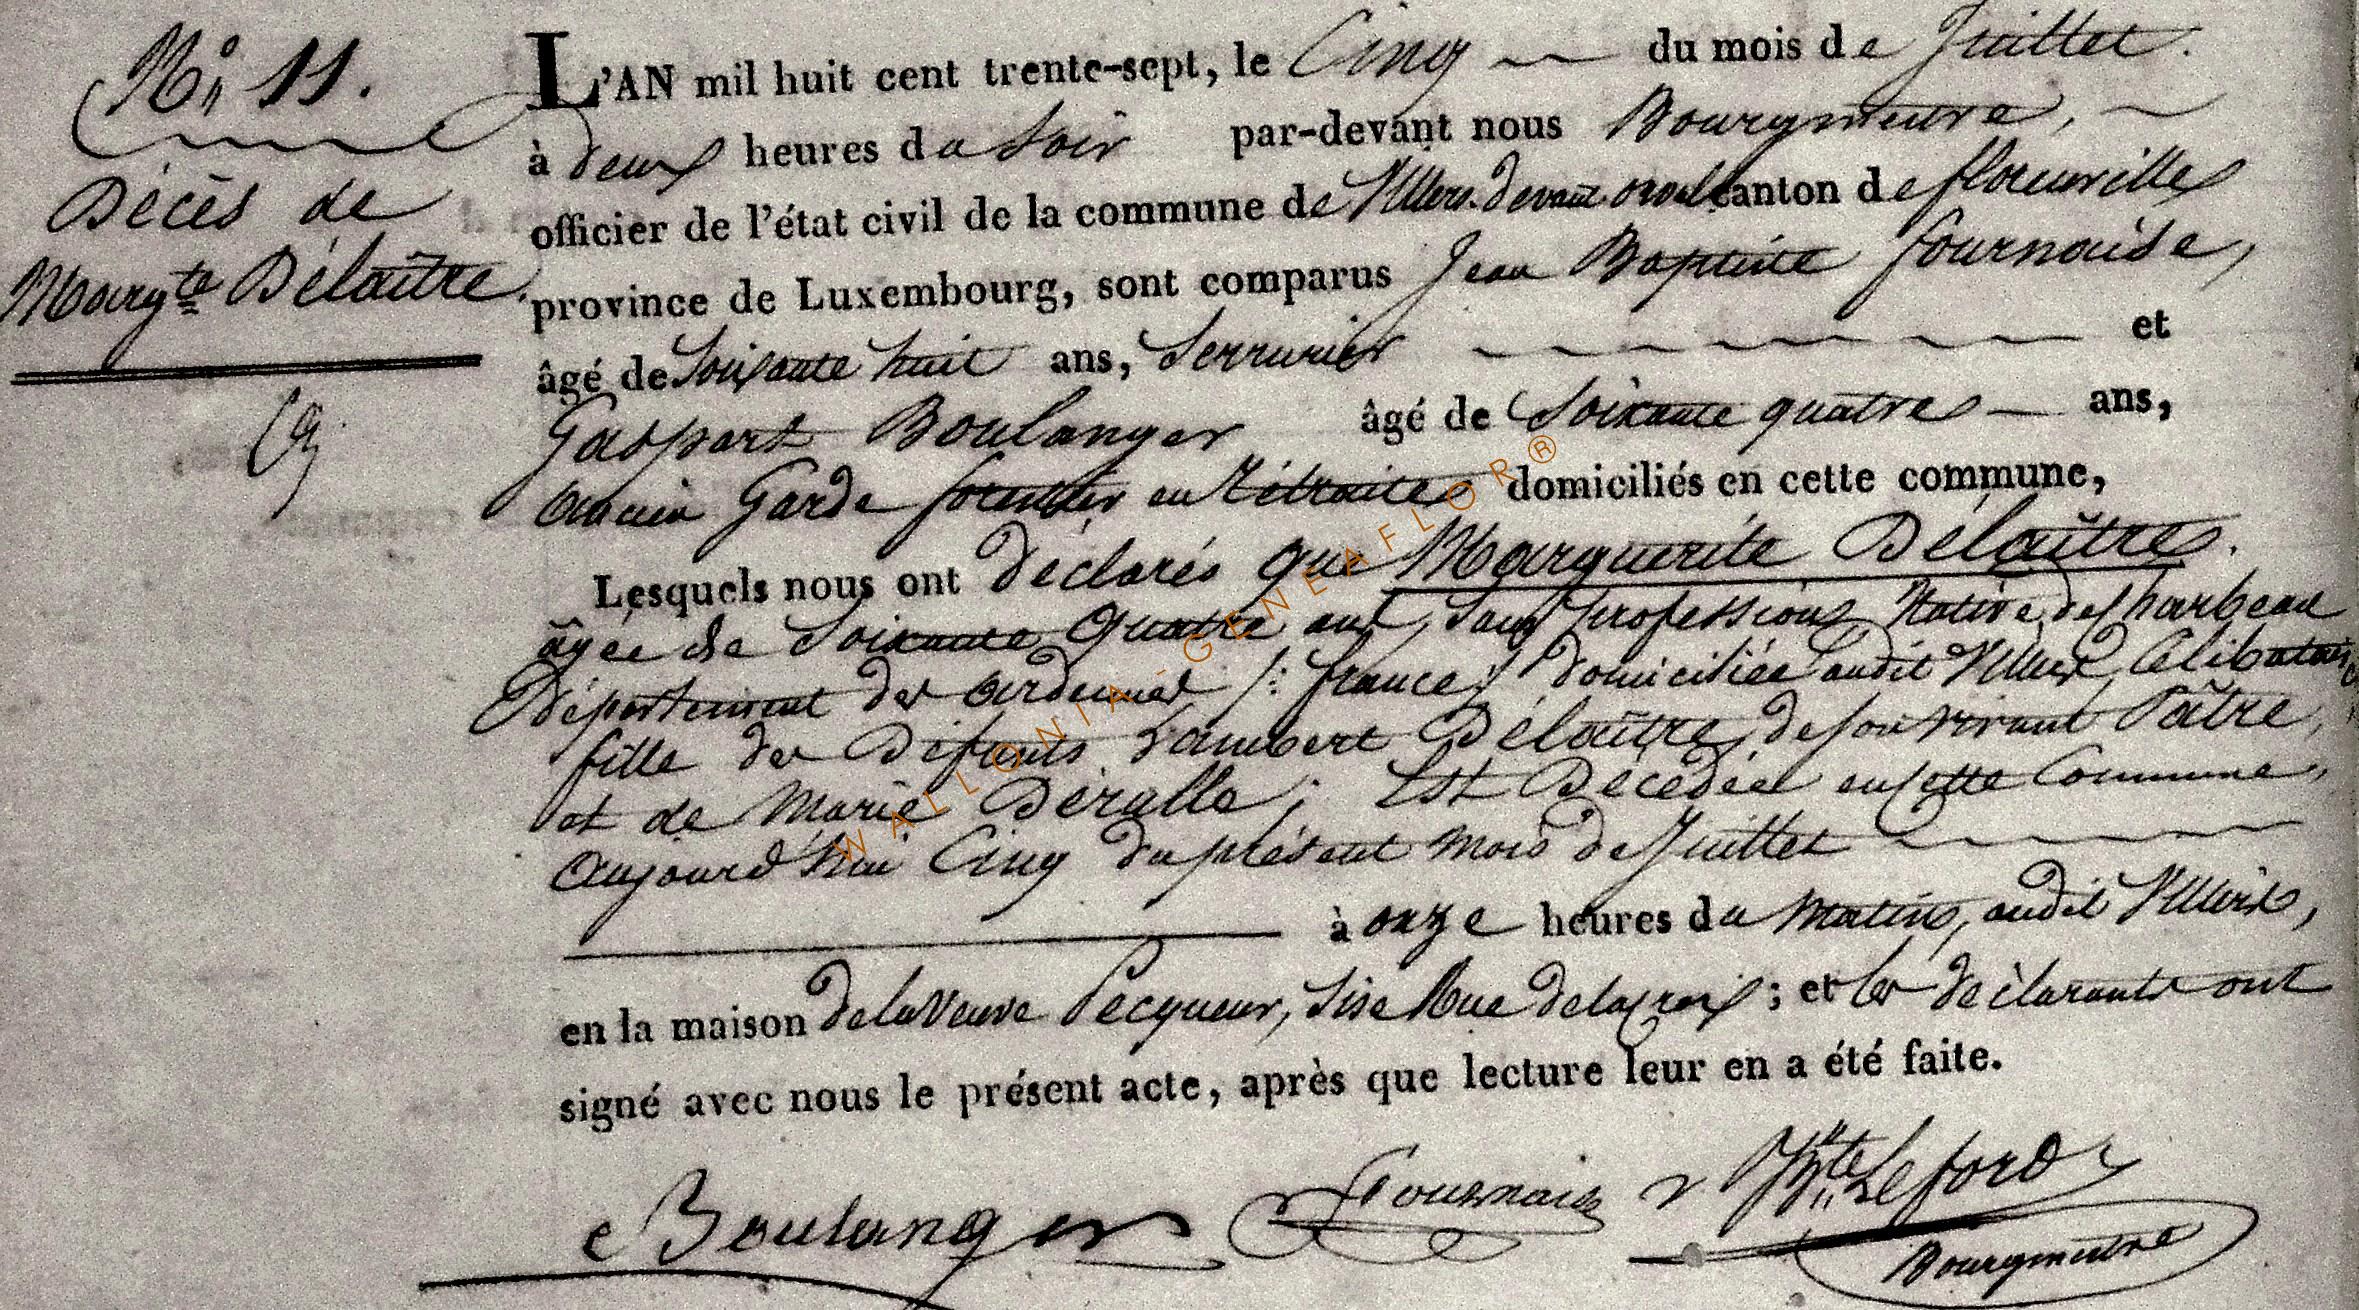 N° 11.
Décès de
Margte Délaître.
L'AN mil huit cent trente-sept, le Cinq du mois de Juillet.
à deux heures du Soir par-devant nous Bourgmestre,
officier de l'état civil de la commune de Villers devant orval canton de florenville
province de Luxembourg, sont comparus Jean Baptiste fournaise,
âgé de Soixante huit ans, Serrurier et
Gaspart Boulanger âgé de Soixante quatre ans,
ancien Garde forestier en rétraite domiciliés en cette commune,
Lesquels nous ont déclarés que Marguerite Délaître.
âgée de Soixante Quatre ans, Sans profession, Native de Charbeau
Département des ardennes /: france :/ domiciliée audit Villers, Célibataire
fille des Défunts Lambert Délaître, de son vivant Pâtre,
et de Marie Déralle; Est Décédée en cette Commune,
aujourd'hui Cinq du présent mois de Juillet
à onze heures du Matin, audit Villers,
en la maison de la Veuve Pecqueur, Sise Rue de la Croix ; et les déclarants ont
signé avec nous le présent acte, après que lecture leur en a été faite.
Boulanger Fournaise Leford
Bourgmestre
WALLONIA-GENEAFLOR®